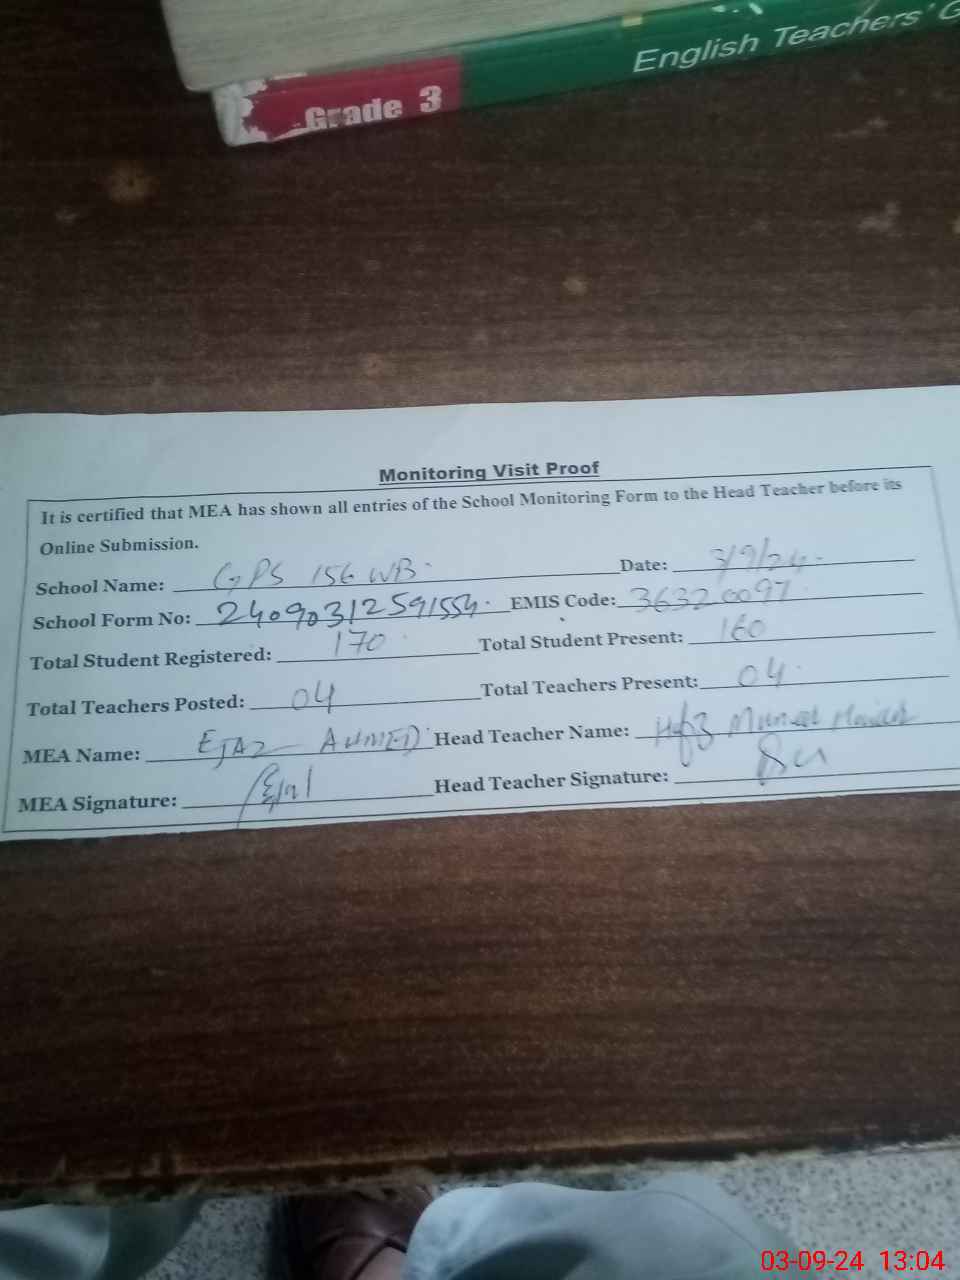 English Teachers' G
Grade 3
Monitoring Visit Proof
It is certified that MEA has shown all entries of the School Monitoring Form to the Head Teacher before its
Online Submission.
School Name: GPS 156 WB. Date: 3/9/24
School Form No: 24090312591554. EMIS Code: 36320097
Total Student Registered: 170 Total Student Present: 160
Total Teachers Posted: 04 Total Teachers Present: 04
MEA Name: EJAZ AHMED Head Teacher Name:
MEA Signature: Head Teacher Signature:
03-09-24 13:04